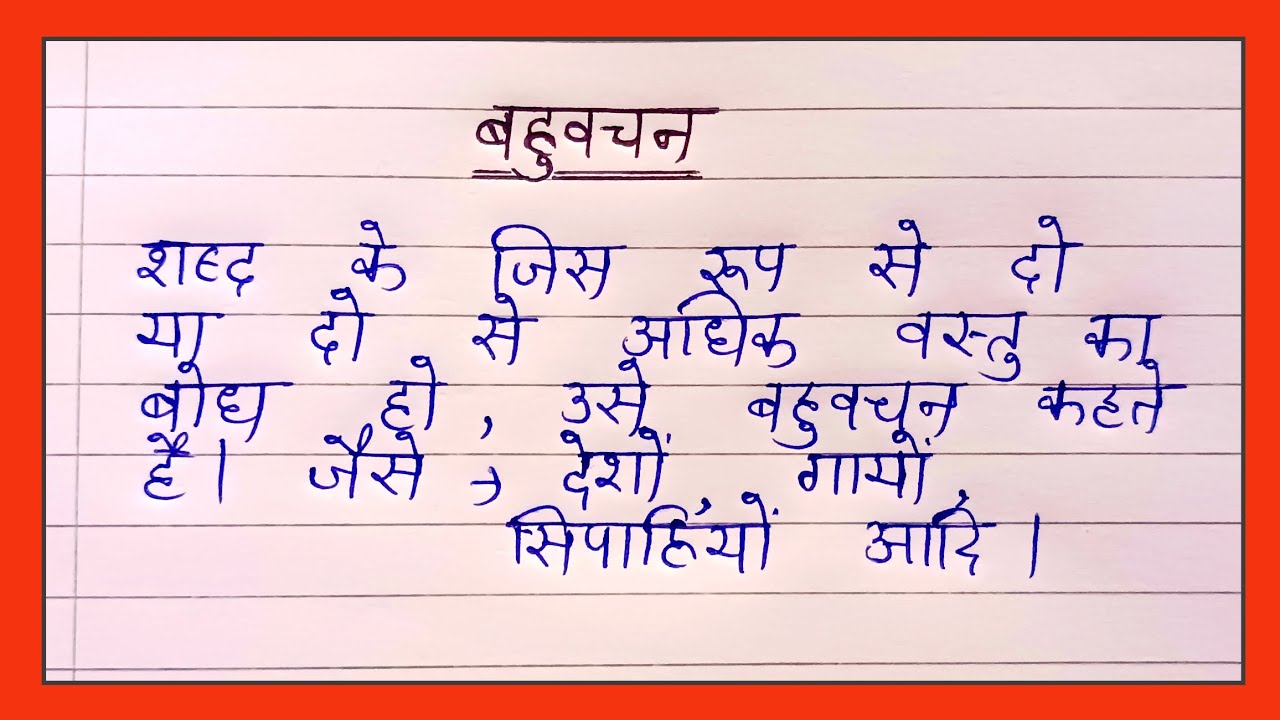 बहुवचन
शब्द के जिस रूप से दो
या दो से अधिक वस्तु का
बोध हो, उसे बहुवचन कहते
है। जैसे → देशों, गायों,
सिपाहियों आदि।